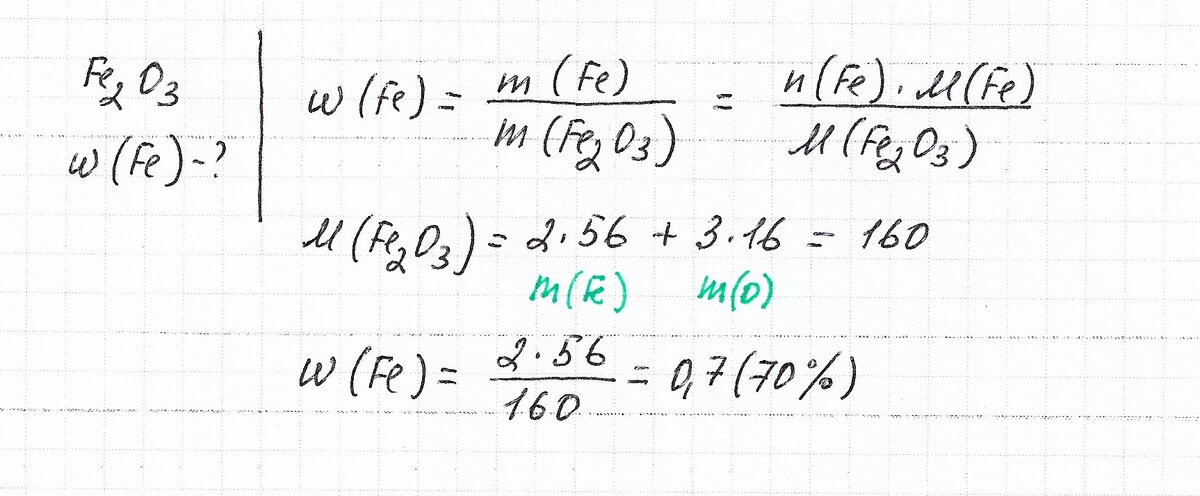 Fe₂O₃
w(Fe)-?
w(Fe) = m(Fe) / m(Fe₂O₃) = n(Fe)·M(Fe) / M(Fe₂O₃)
M(Fe₂O₃) = 2·56 + 3·16 = 160
m(Fe) m(O)
w(Fe) = 2·56 / 160 = 0,7(70%)